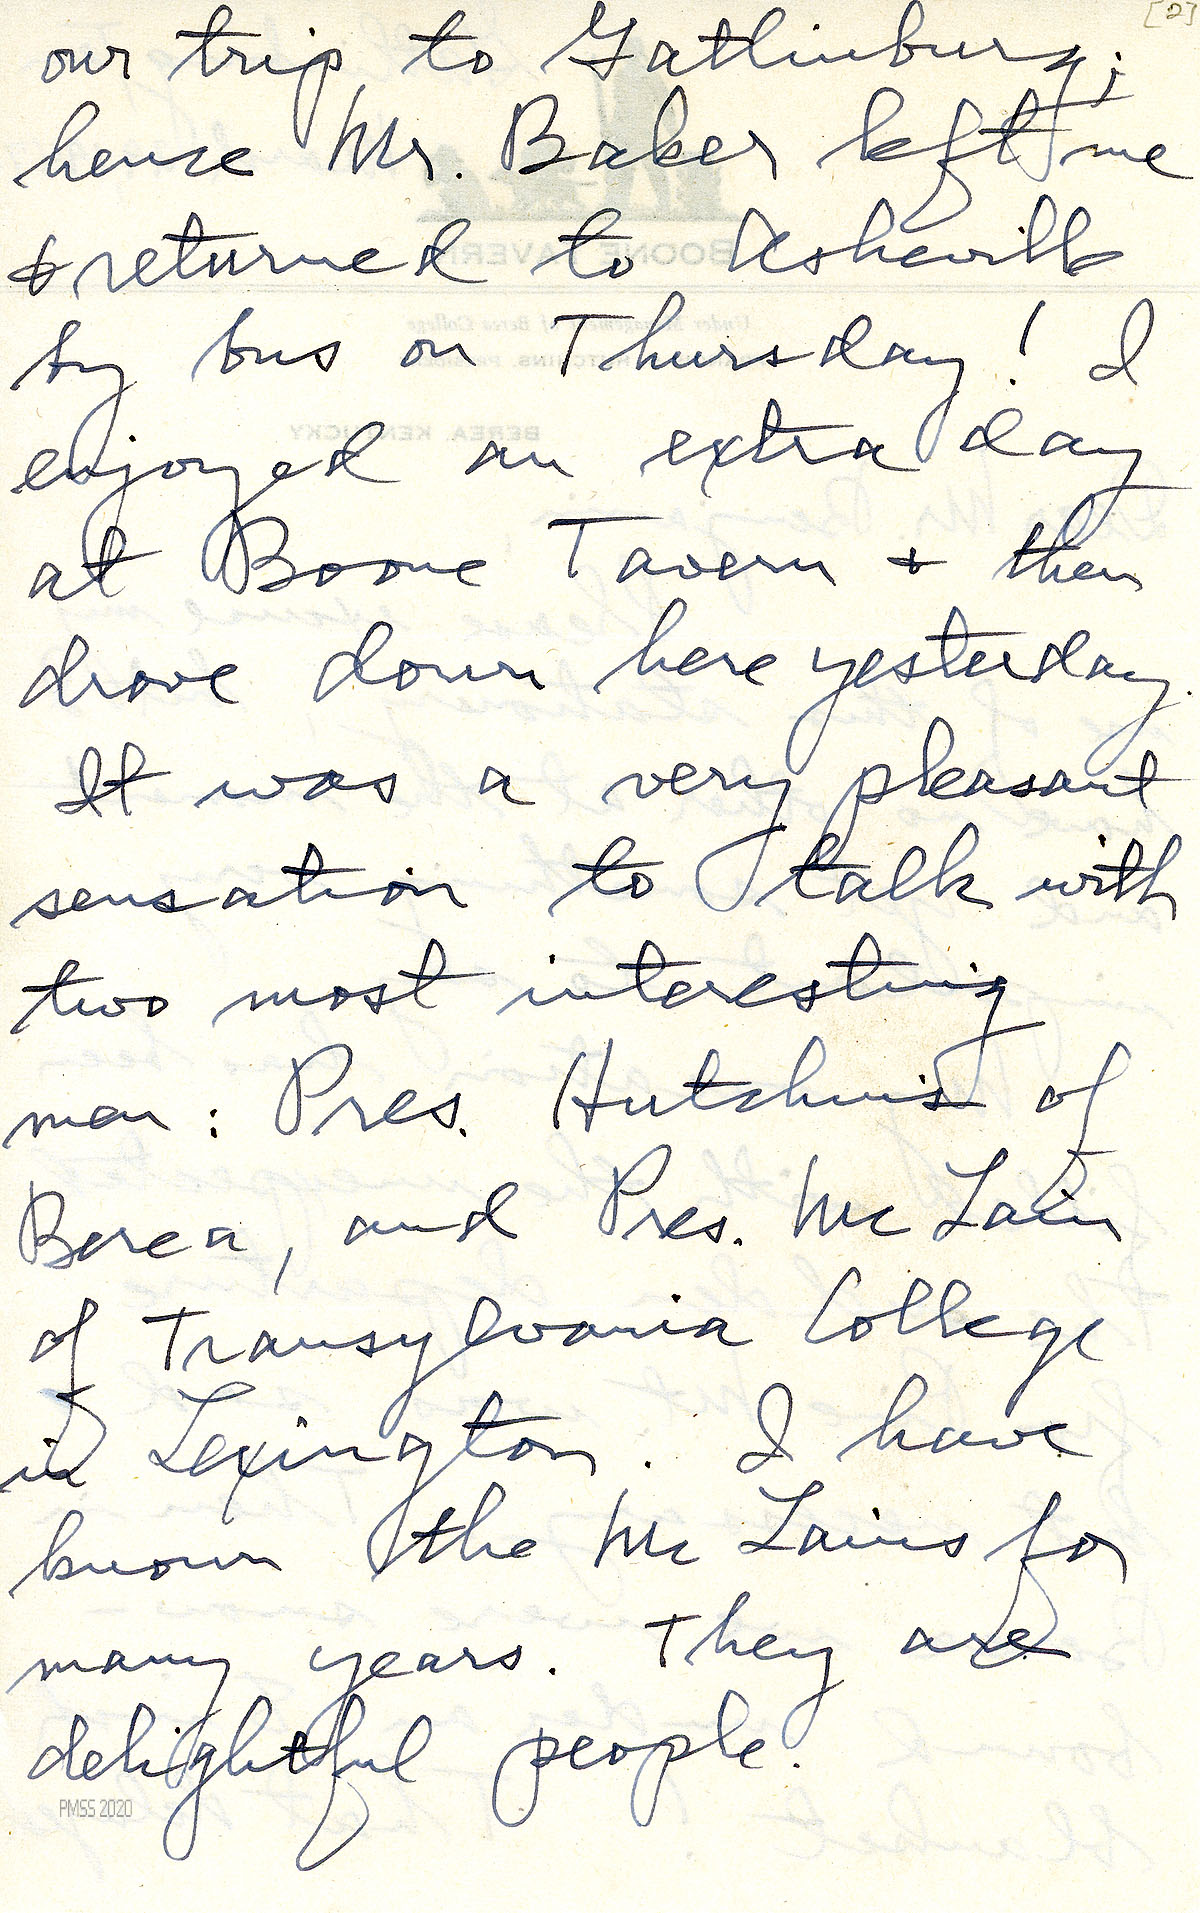 [2]
our trip to Gatlinburg;
hence Mr. Baker left me
& returned to Asheville
by bus on Thursday! I
enjoyed an extra day
at Boone Tavern & then
drove down here yesterday.
It was a very pleasant
sensation to talk with
two most interesting
men: Pres. Hutchins of
Berea, and Pres. McLain
of Transylvania College
in Lexington. I have
known the McLains for
many years. They are
delightful people.
PMSS 2020
BOONE TAVERN
Under Management of Berea College
BEREA KENTUCKY